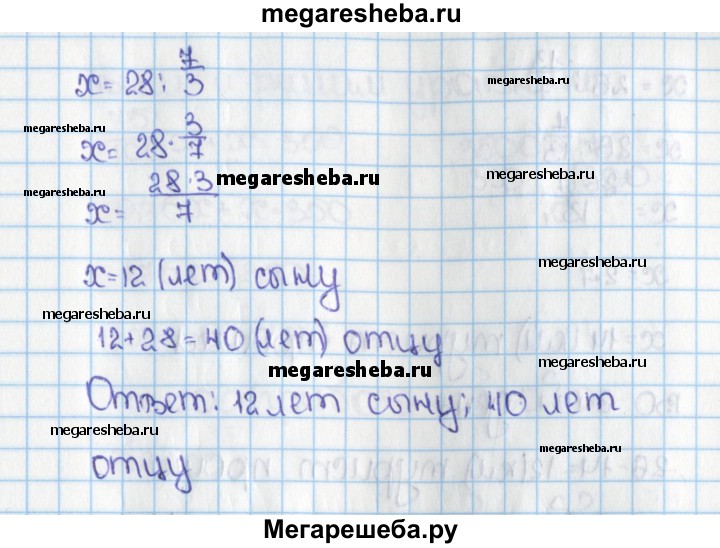 megaresheba.ru
x = 28 : 7/3
megaresheba.ru
megaresheba.ru
x = 28 · 3/7
megaresheba.ru
megaresheba.ru
megaresheba.ru
x = 28·3/7
x = 12 (лет) сыну
megaresheba.ru
megaresheba.ru
12 + 28 = 40 (лет) отцу
megaresheba.ru
megaresheba.ru
Ответ: 12 лет сыну; 40 лет
megaresheba.ru
megaresheba.ru
отцу
Мегарешеба.ру